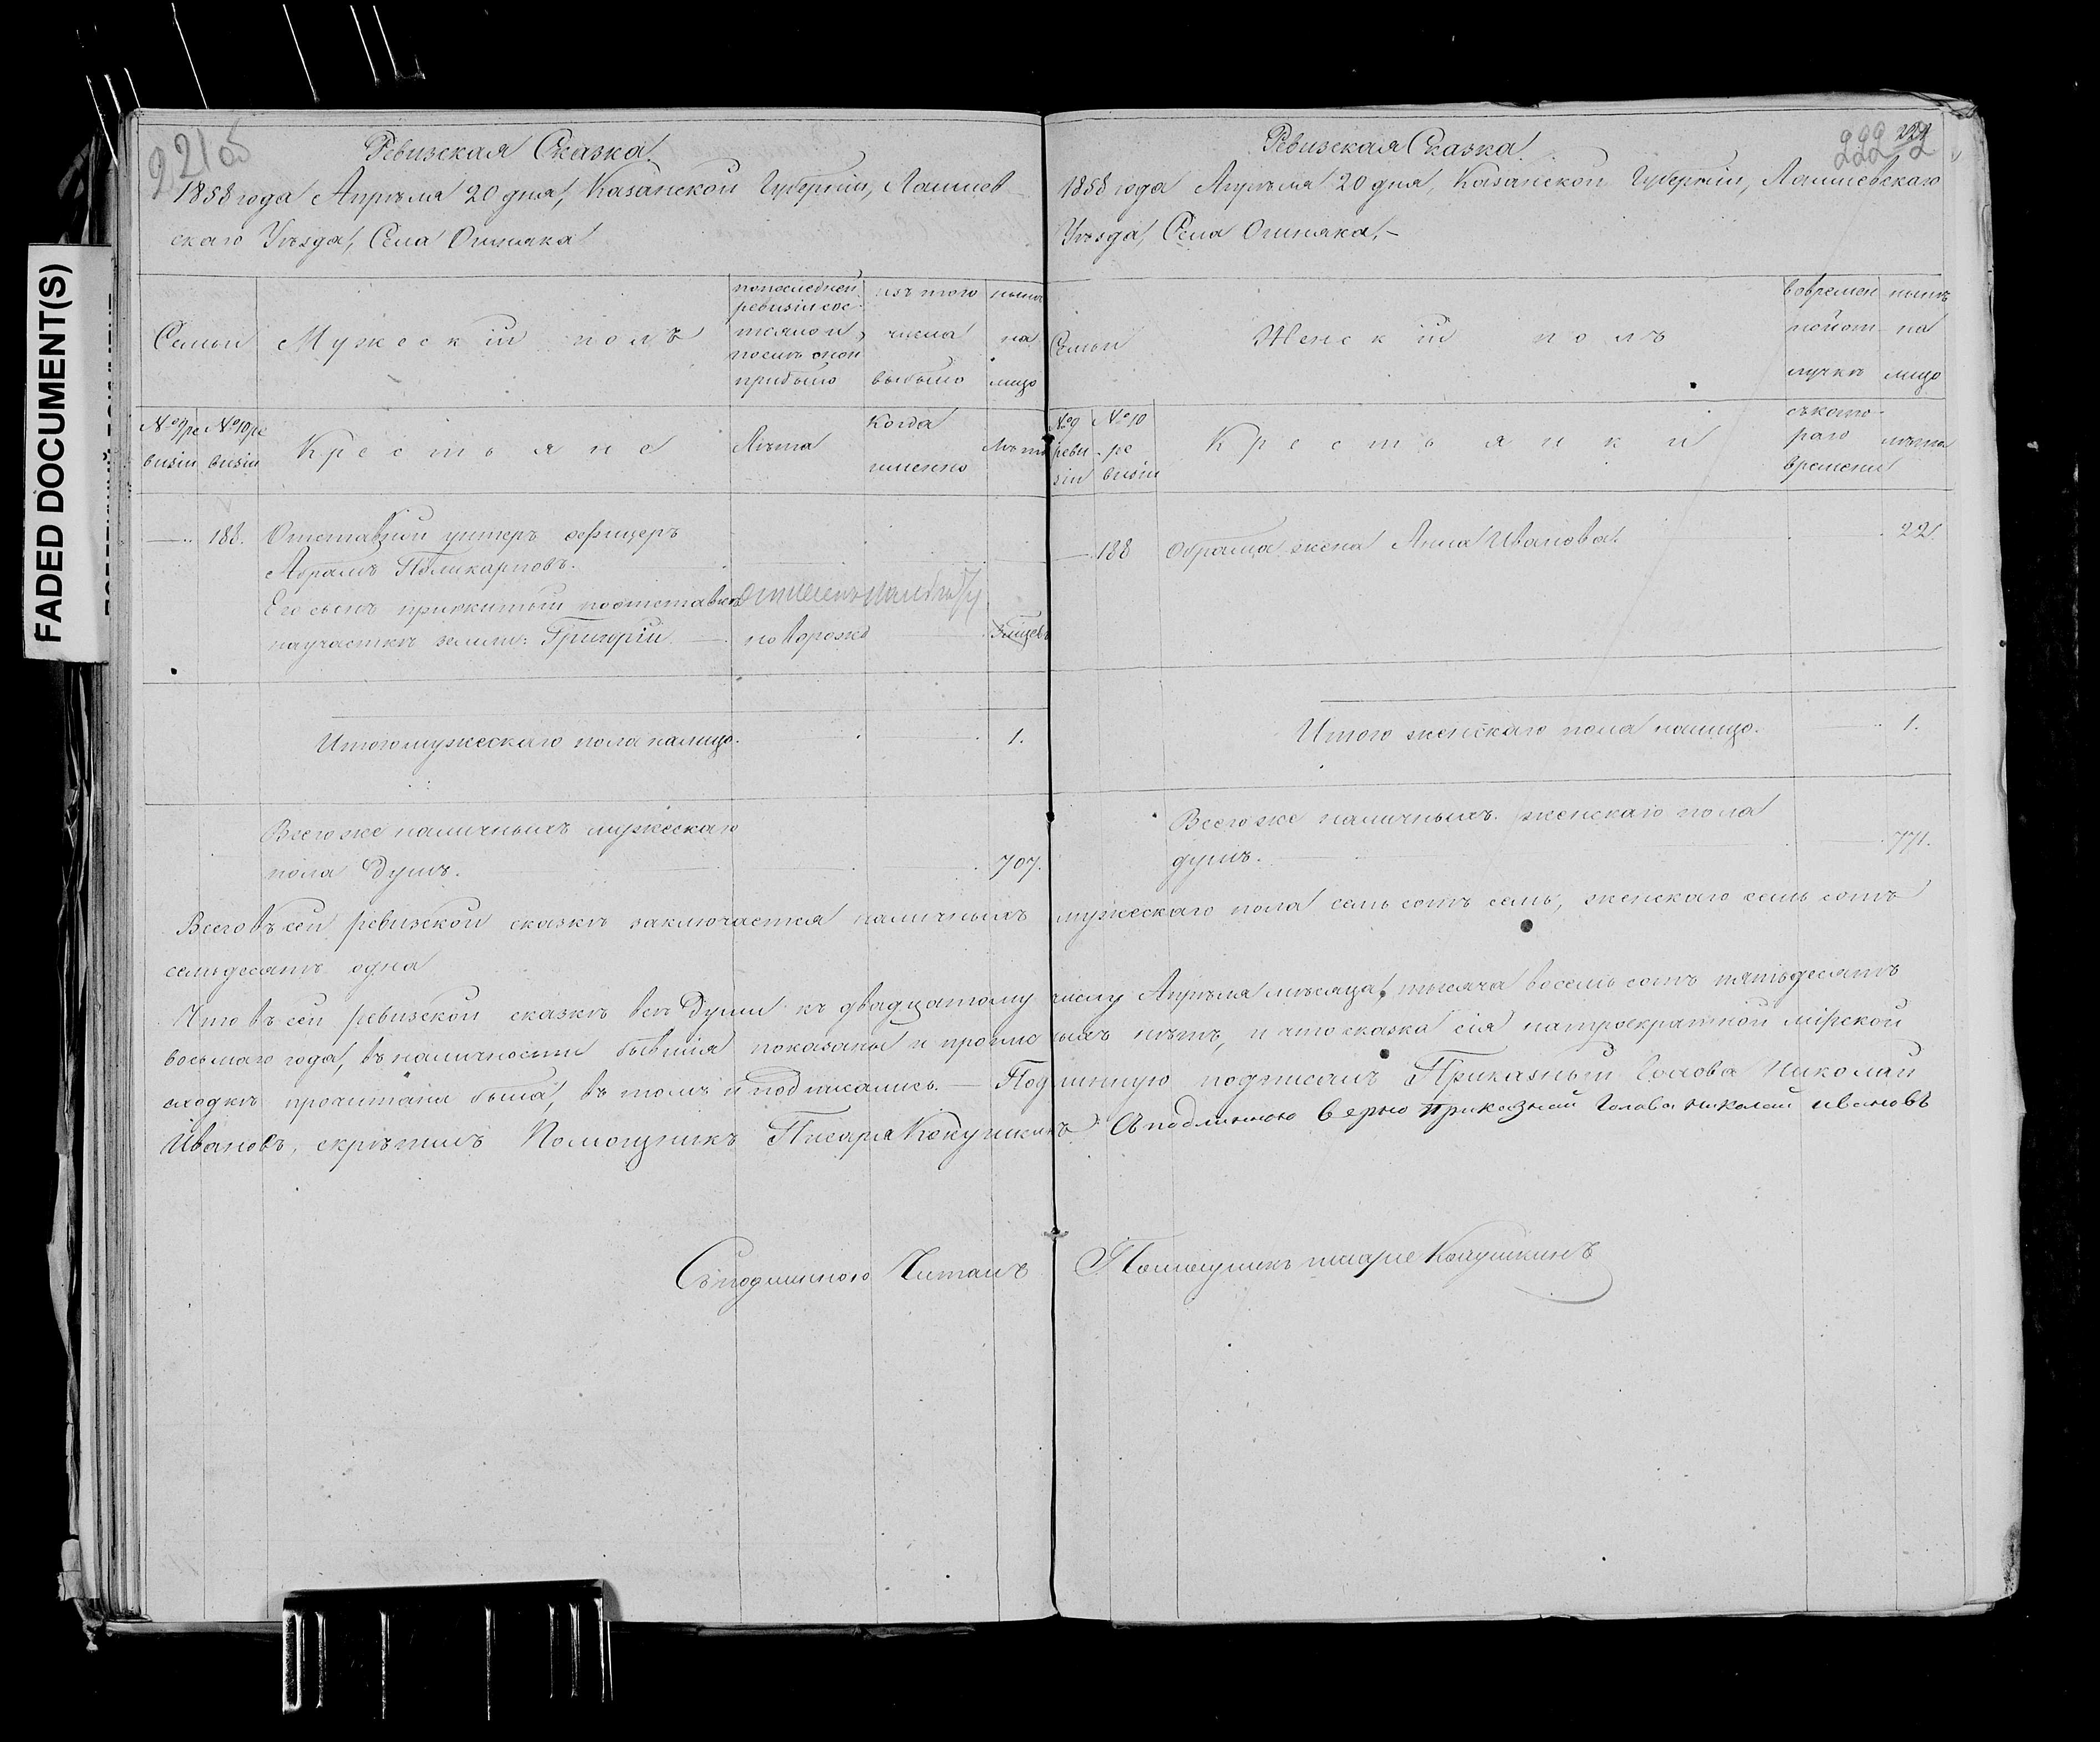 FADED DOCUMENT(S)
221об
Ревизская Сказка.
1858 года Апрѣля 20 дня, Казанской Губерніи, Лаишев
скаго Уѣзда, Села Ошняка
Семьи
Мужескій полъ
по последней
ревизіи сос-
тояло и
послѣ оной
прибыло
изъ того
числа
выбыло
нынѣ
на
лицо
№ 9 ре
визіи
№ 10 ре
визіи
Крестьяне
Лѣта
Когда
именно
Лѣта
188.
Отставной унтеръ офицеръ
Абрамъ Поликарповъ.
Его сынъ прижитый по отставкѣ
на участкѣ земли: Григорій
новорожд
3 мѣсев
Итого мужескаго пола на лицо.
1.
Всего же наличныхъ мужескаго
пола душъ.
707.
222
Ревизская Сказка.
1858 года Апрѣля 20 дня, Казанской Губерніи, Лаишевскаго
Уѣзда, Села Ошняка.
Семьи
Женскій полъ
во времен
ной от
лучкѣ
нынѣ
на
лицо
№ 9
реви
зіи
№ 10
ре
визіи
Крестьянки
съ кото-
раго
времени
лѣта
188
Абрама жена Анна Иванова.
22.
Итого женскаго пола на лицо.
1.
Всего же наличныхъ женскаго пола
душъ.
771.
Всего въ сей ревизской сказкѣ заключается наличныхъ мужескаго пола семь сотъ семь, женскаго семь сотъ
семьдесятъ одна
Что въ сей ревизской сказкѣ всѣ души къ двадцатому числу Апрѣля мѣсяца, тысяча восемь сотъ пятьдесятъ
восьмаго года, въ наличности бывшія показаны и прописныхъ нѣтъ, и что сказка сія на троекратной мірской
сходкѣ прочитана была, въ томъ и подписались. — Подлинную подписалъ Приказный Голова Николай
Ивановъ, скрѣпилъ Помощникъ Писаря Кокушкинъ. Съ подлинною верно приказной голова николай ивановъ
Съ подлинною Читалъ Помощникъ писаря Кокушкинъ